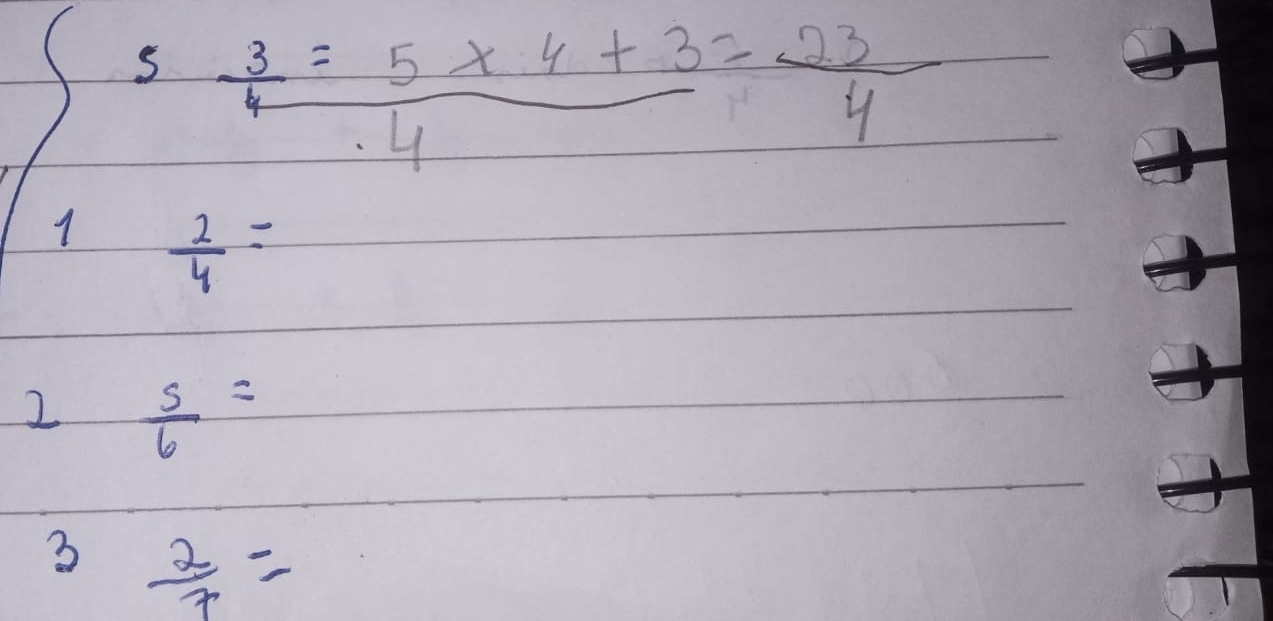 5 3/4 = 5 x 4 + 3 / 4 = 23/4
1 2/4 =
2 5/6 =
3 2/7 =